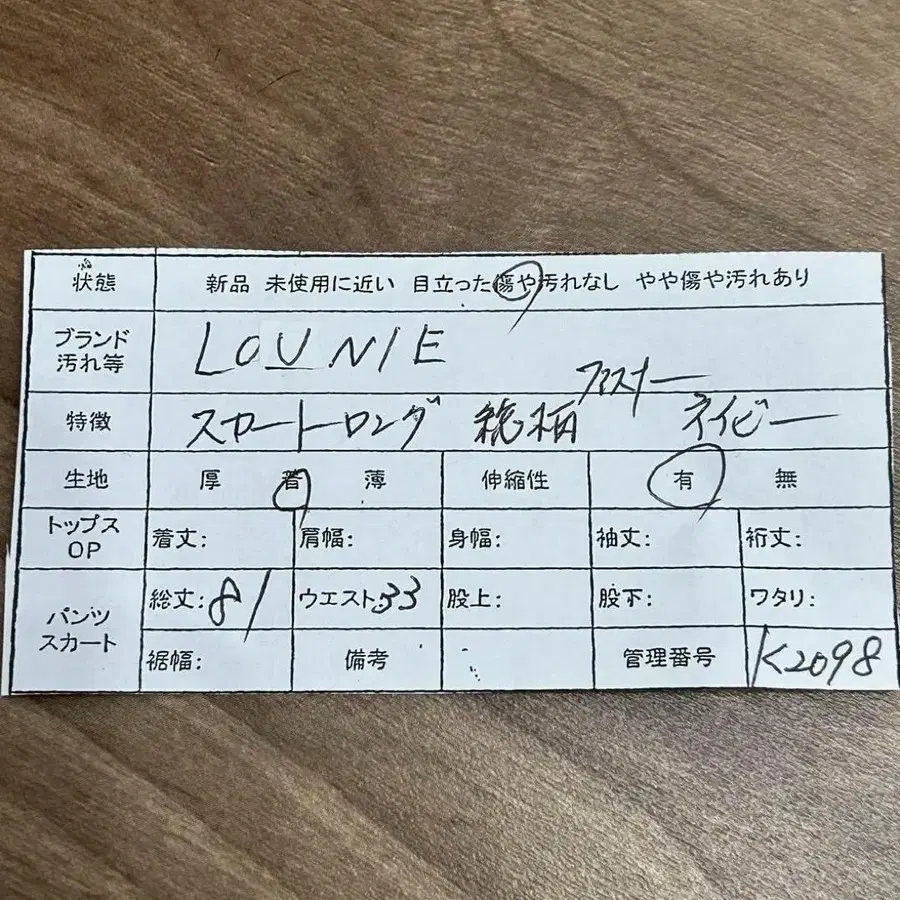 状態 新品 未使用に近い 目立った傷や汚れなし やや傷や汚れあり
ブランド 汚れ等 LOUNIE
特徴 スカートロング 総柄 ファスナー ネイビー
生地 厚 普 薄 伸縮性 有 無
トップス OP 着丈: 肩幅: 身幅: 袖丈: 裄丈:
パンツ スカート 総丈:81 ウエスト:33 股上: 股下: ワタリ:
裾幅: 備考 管理番号 K2098